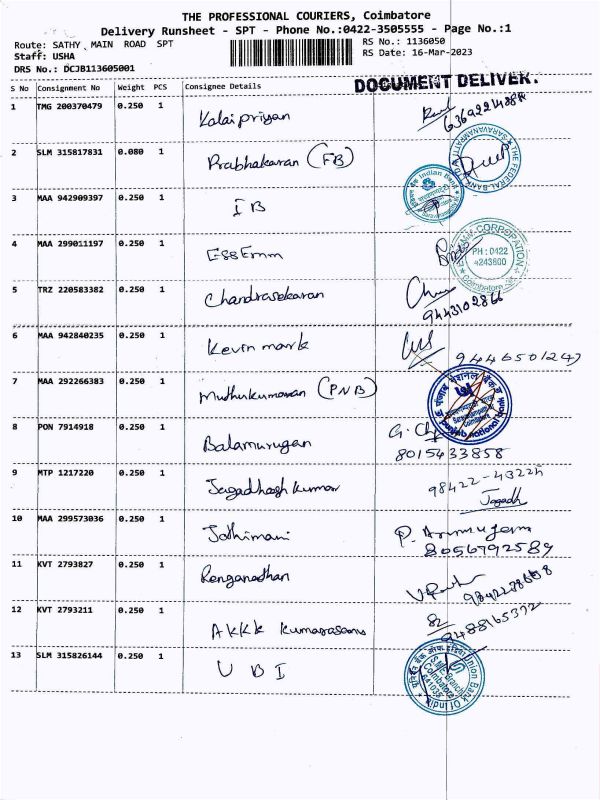 THE PROFESSIONAL COURIERS, Coimbatore
Delivery Runsheet - SPT - Phone No.:0422-3505555 - Page No.:1
Route: SATHY MAIN ROAD SPT
RS No.: 1136050
Staff: USHA
RS Date: 16-Mar-2023
DRS No.: DCJB113605001
DOCUMENT DELIVER.
S No Consignment No Weight PCS Consignee Details
1 TMG 200370479 0.250 1 Kalaipriyan
2 SLM 315817831 0.080 1 Prabhakaran (FB)
THE FEDERAL BANK LTD SARAVANAMPATTI
3 MAA 942909397 0.250 1 IB
Indian Bank
4 MAA 299011197 0.250 1 ESSEmm
CORPORATION
PH : 0422
4243800
Coimbatore
5 TRZ 220583382 0.250 1 Chandrasekaran
9443102866
6 MAA 942840235 0.250 1 Kevin mark
9446501247
7 MAA 292266383 0.250 1 Muthukumaran (PNB)
पंजाब नैशनल बैंक
punjab national bank
8 PON 7914918 0.250 1 Balamurugan
8015433858
9 MTP 1217220 0.250 1 Jagadhesh kumar
98422-43224
Jagadh
10 MAA 299573036 0.250 1 Jothimani P. Arumugam
8056792589
11 KVT 2793827 0.250 1 Renganathan
12 KVT 2793211 0.250 1 AKKK Kumarasamy
9488165372
13 SLM 315826144 0.250 1 UBI
यूनियन बैंक ऑफ इंडिया Union Bank Of India
SME Branch
Coimbatore
641035